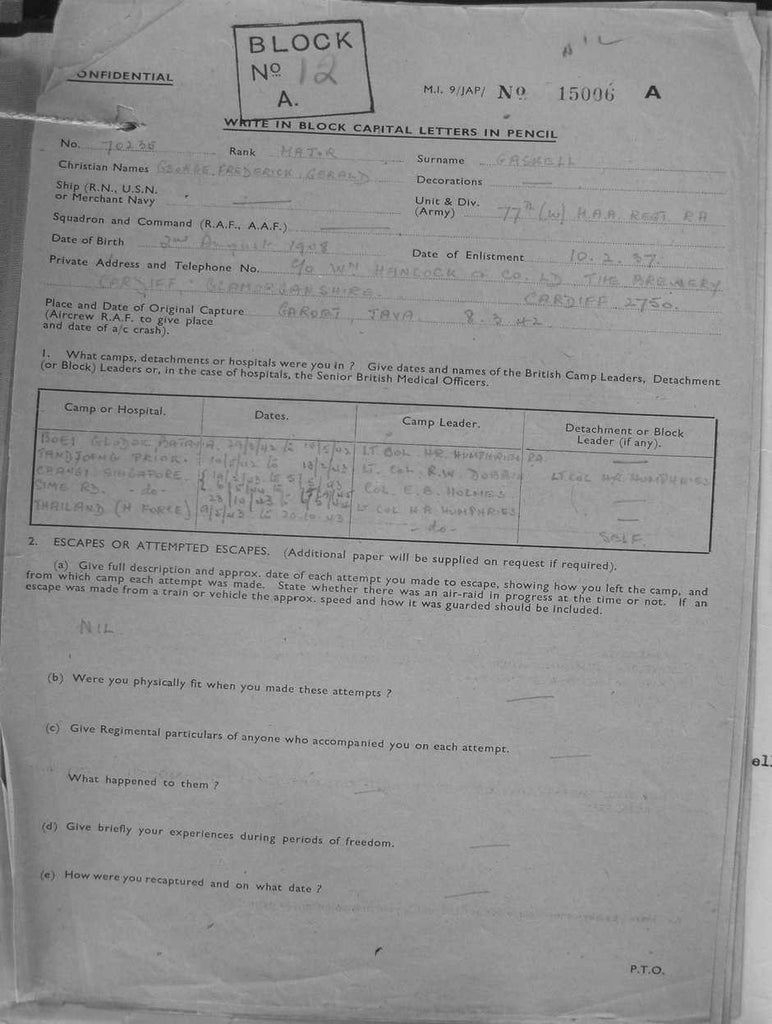 BLOCK
Nº 12
A.
NIL
ONFIDENTIAL
M.I. 9/JAP/ Nº 15006 A
WRITE IN BLOCK CAPITAL LETTERS IN PENCIL
No. 70236 Rank MAJOR Surname GASKELL
Christian Names GEORGE FREDERICK GERALD Decorations
Ship (R.N., U.S.N.
or Merchant Navy
Unit & Div.
(Army) 77th (W) H.A.A. REGT RA
Squadron and Command (R.A.F., A.A.F.)
Date of Birth 2nd August 1908 Date of Enlistment 10.2.37.
Private Address and Telephone No. c/o WM HANCOCK & CO. LD THE BREWERY
CARDIFF GLAMORGANSHIRE. CARDIFF 2750.
Place and Date of Original Capture GAROET, JAVA 8.3.42
(Aircrew R.A.F. to give place
and date of a/c crash).
1. What camps, detachments or hospitals were you in ? Give dates and names of the British Camp Leaders, Detachment
(or Block) Leaders or, in the case of hospitals, the Senior British Medical Officers.
Camp or Hospital. Dates. Camp Leader. Detachment or Block
Leader (if any).
BOEI GLODOK BATAVIA. LT COL HR. HUMPHRIES RA
TANDJOENG PRIOK. LT. COL. R.W.
CHANGI SINGAPORE. COL E.B. HOLMES LT COL HR HUMPHRIES
SIME RD. -do- LT COL HR HUMPHRIES
THAILAND (H FORCE) 9/5/43 to 20.10.43 -do- SELF
2. ESCAPES OR ATTEMPTED ESCAPES. (Additional paper will be supplied on request if required).
(a) Give full description and approx. date of each attempt you made to escape, showing how you left the camp, and
from which camp each attempt was made. State whether there was an air-raid in progress at the time or not. If an
escape was made from a train or vehicle the approx. speed and how it was guarded should be included.
NIL
(b) Were you physically fit when you made these attempts ?
(c) Give Regimental particulars of anyone who accompanied you on each attempt.
What happened to them ?
(d) Give briefly your experiences during periods of freedom.
(e) How were you recaptured and on what date ?
P.T.O.
ell